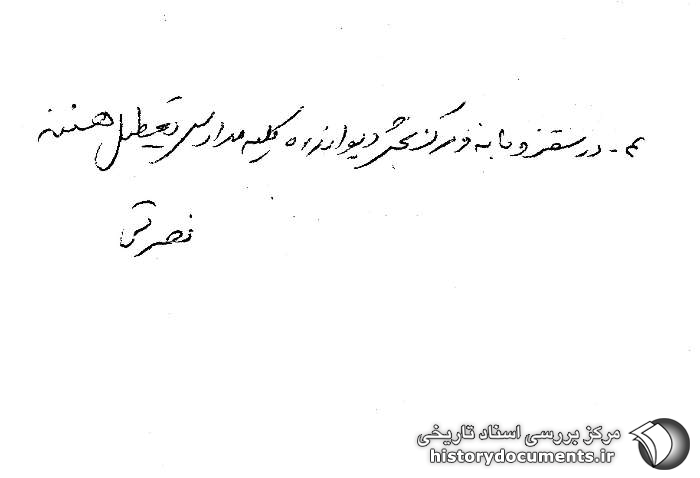 ۳- در سقز و بانه و مرکز بخش دیواندره کلیه مدارس تعطیل هستند
نصرتی
مرکز بررسی اسناد تاریخی
historydocuments.ir